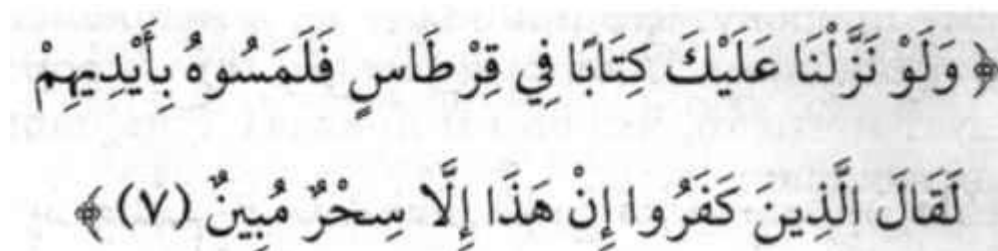 ﴿ وَلَوْ نَزَّلْنَا عَلَيْكَ كِتَابًا فِي قِرْطَاسٍ فَلَمَسُوهُ بِأَيْدِيهِمْ
لَقَالَ الَّذِينَ كَفَرُوا إِنْ هَذَا إِلَّا سِحْرٌ مُبِينٌ (٧) ﴾